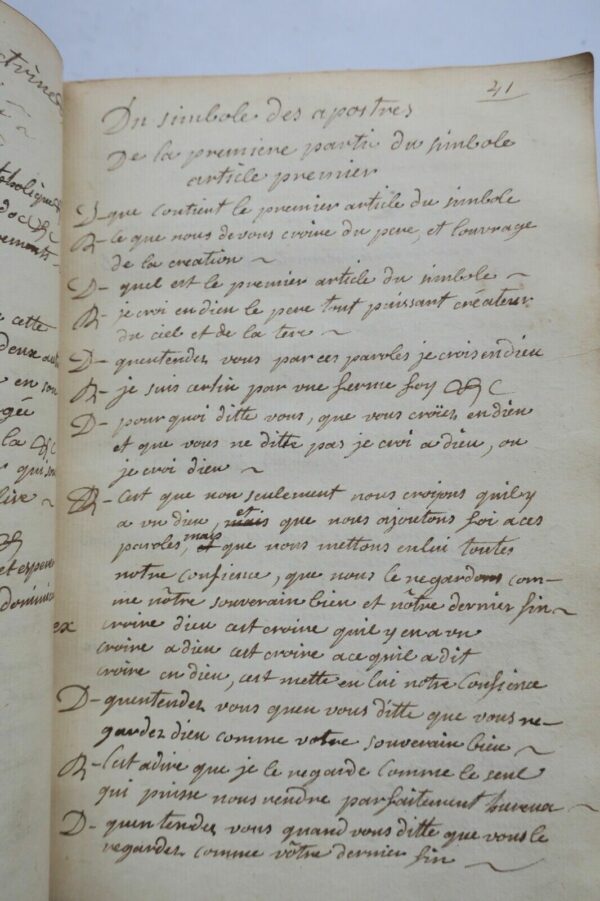 trine
tholique
doc &c
rements
cette
deux au
en son
gée
la &c
qui so
live
&
et expen
dominic
41
Du simbole des apostres
De la premiere parti du simbole
article premier
D- que contient le premier article du simbole
R- ce que nous devons croire du pere, et louvrage
de la creation ~
D- quel est le premier article du simbole ~
R- je croi en dieu le pere tout puissant créateur
du ciel et de la tere ~
D- quentendez vous par ces paroles je crois en dieu
R- je suis certin par vne ferme foy &c
D- pourquoi ditte vous, que vous croïez en dieu
et que vous ne ditte pas je croi a dieu, ou
je croi dieu ~
R- Cest que non seulement nous croïons quil y
a vn dieu, et que nous ajoutons foi a ces
paroles, mais que nous mettons en lui toutes
notre confience, que nous le regardons com-
me nôtre souverain bien et nôtre dernier fin ~
ex croire dieu cest croire quil y en a vn
croire a dieu cest croire a ce quil a dit
croire en dieu, cest mette en lui notre Confience
D- quentendez vous quen vous ditte que vous re-
gardez dieu comme votre souverain bien ~
R- Cest a dire que je le regarde comme le seul
qui puisse nous rendre parfaitement hureux ~
D- quentendez vous quand vous ditte que vous le
regardez comme vôtre dernier fin ~